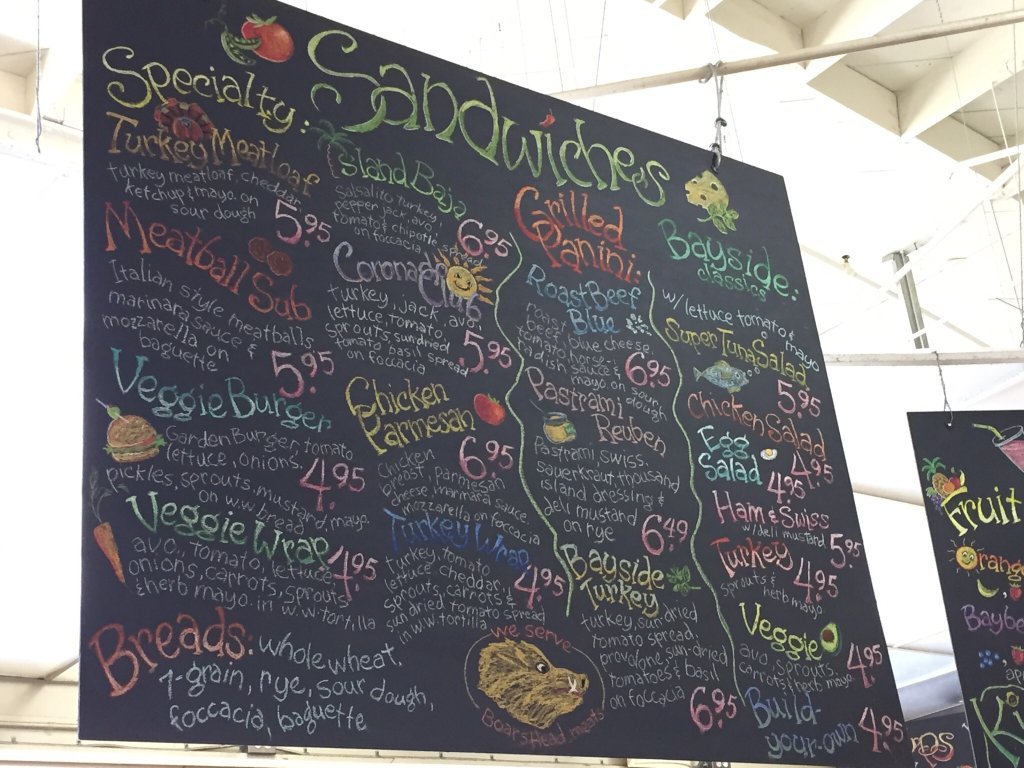 Sandwiches
Specialty:
Turkey Meatloaf
turkey meatloaf, cheddar,
ketchup & mayo on
sour dough
5.95
Meatball Sub
Italian style meatballs
marinara sauce &
mozzarella on
baguette
5.95
Veggie Burger
Garden Burger, tomato
lettuce, onions,
pickles, sprouts, mustard, mayo.
on w.w. bread
4.95
Veggie Wrap
avo, tomato, lettuce
onions, carrots, sprouts
& herb mayo. in w.w. tortilla
4.95
Island Baja
Salsalito turkey,
pepper jack, avo,
tomato & chipotle
on foccacia
6.95
Coronado Club
turkey, jack, avo,
lettuce, tomato,
sprouts, sundried
tomato basil spread
on foccacia
5.95
Chicken
Parmesan
6.95
Chicken
breast, Parmesan
cheese, marinara sauce.
mozzarella on foccacia
Turkey Wrap
turkey, tomato,
lettuce, cheddar,
sprouts, carrots &
sun dried tomato spread
in w.w. tortilla
4.95
Grilled
Panini:
Roast Beef
Blue
roast
beef, blue cheese
tomato, horse-
radish sauce &
mayo on
sour dough
6.95
Pastrami-
Reuben
Pastrami, swiss,
sauerkraut, thousand
island dressing &
deli mustard
on rye
6.49
Bayside
Turkey
turkey, sun dried
tomato spread,
provolone, sun-dried
tomatoes & basil
on foccacia
6.95
Bayside
classics:
w/ lettuce tomato & mayo
Super Tuna Salad
5.95
Chicken Salad
4.95
Egg
Salad
4.95
Ham & Swiss
w/ deli mustard
5.95
Turkey
sprouts &
herb mayo
4.95
Veggie
avo, sprouts,
carrots & herb mayo
4.95
Build-
your-own
4.95
Breads: whole wheat,
7-grain, rye, sour dough,
foccacia, baguette
we serve
Boars Head meats
Fruit